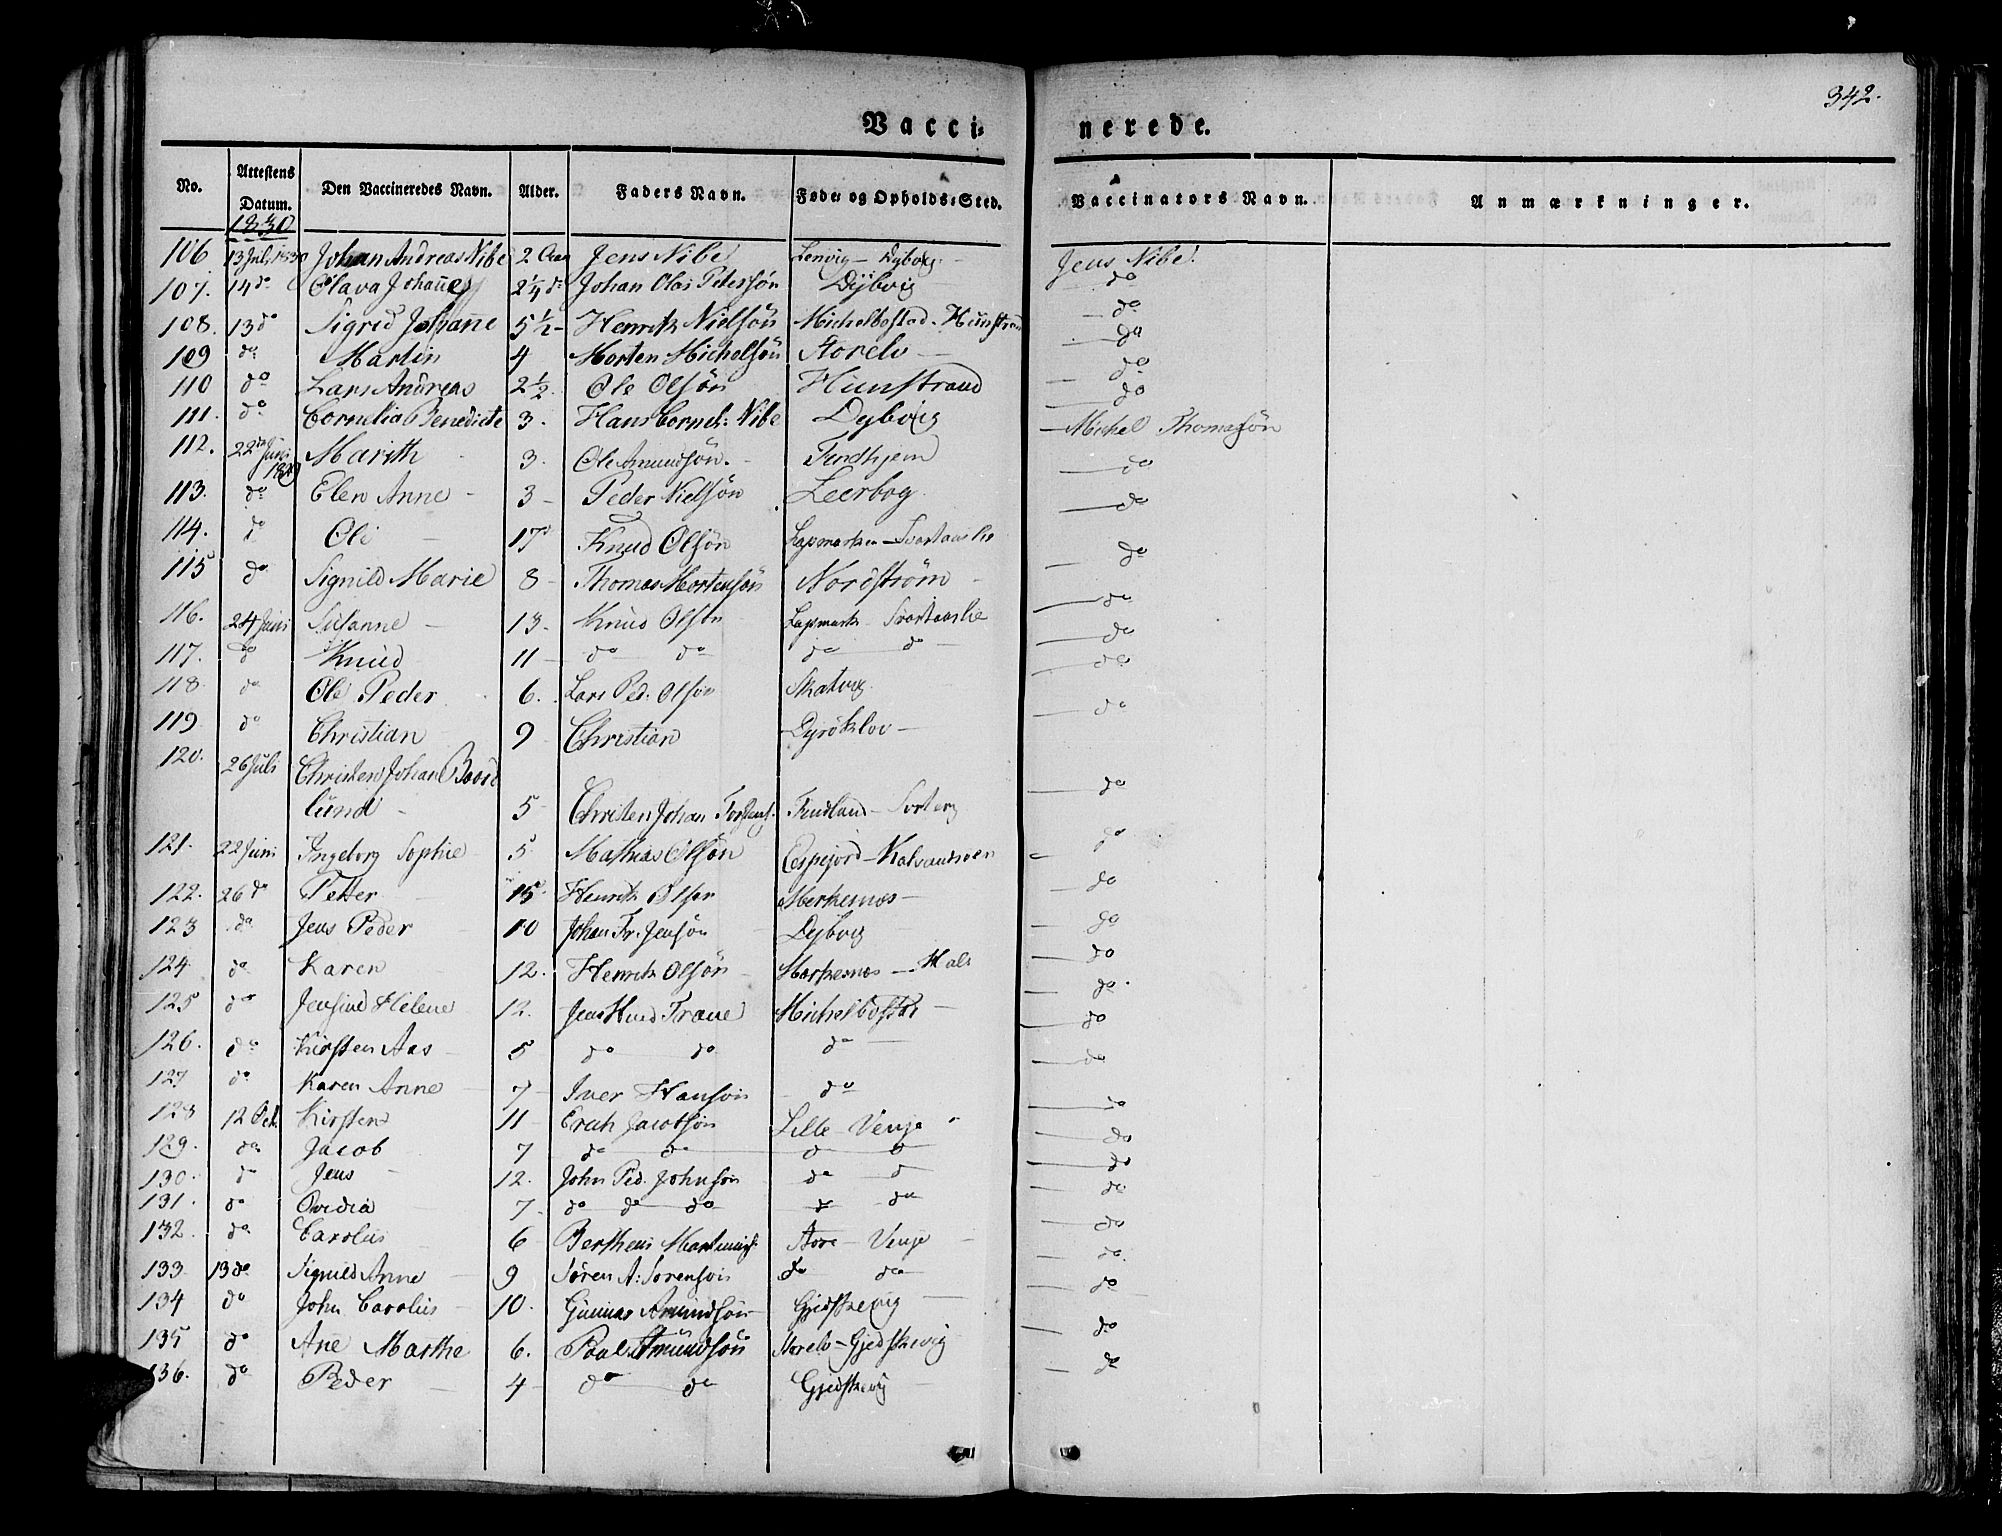 342.
Vacci- nerede.
No. Attestens Datum. Den Vaccineredes Navn. Alder. Faders Navn. Føde- og Opholds-Sted. Vaccinators Navn. Anmærkninger.
1830
106 13 Juli 1830 Johan Andreas Nibe 2 Aar Jens Nibe Lenvig - Dybvig - Jens Nibe.
107. 14 do Olava Johanne 2 1/4 do Johan Olai Peterssøn Dÿbvig - do
108. 13 do Sigrid Johanne 5 1/2 - Henrik Nielsön Michelbostad - Hunstrand - do
109 do Martin 4 Morten Michelsön Storelv - - do
110 do Lars Andreas 2 1/2. Ole Olsön Hunstrand - do
111. do Cornelia Benedicte 3. Hans Cornel: Nibe Dybvig - do
112. 22 Juni 1830 Marith - 3. Ole Amundsön. - Findhjem - Michel Thomassön
113. do Elen Anne - 3 - Peder Nielsön Leerbog. - do
114. do Oli - 17 Knud Olsön Lapmarken - Svartaaslie - do
115 do Signild Marie 8 - Thomas Mortensön Nordström - - do
116. 24 Juni Susanne - 13 - Knud Olsön Lapmark - Svartaaslie - do
117. do Knud 11 - do do do do - - do
118 do Ole Peder 6. Lars Ped. Olsön Skatvig - do
119 do Christian 9 - Christian Dyröklov - - do
120. 26 Juli Christen Johan
lund - 5 - Christen Johan Findland - - do
121. 22 Juni Ingeborg Sophie 5 Mathias Olsön Espejord - - do
122. 26 do Petter 15 Henrik Olsen Merkesnæs - - do
123 do Jens Peder - 10 Johan Fr. Jensön Dÿbvig - do
124 do Karen 12. Henrik Olsön - Markesnæs - Mals - do
125 do Jensine Helene 12. Jens Hind Trane Michelbostad - - do
126. do Kirsten Aas - 5 do do do - - do
127 do Karen Anne - 7 - Iver Hansön - do - do
128 12 Oct. Kirsten 11 - Erich Jacobsön Lille Venje - do
129. do Jacob 7 do do do do - do
130. do Jens - 12. John Ped. Johnsön do do - do
131. do Ovidia 7. do do do do do - do
132. do Carolus 6 - Bertheus Store - Venje - - do
133 13 do Signild Anne - 9 Sören A: Sörensön do do - do
134 do John Carolus - 10. Gunnar Amundsön Gjedskevig - - do
135 do Ane Marthe 6. Poul Amundsön Storelv - Gjedskevig - do
136. do Peder - 4 - do do Gjedskevig - - do